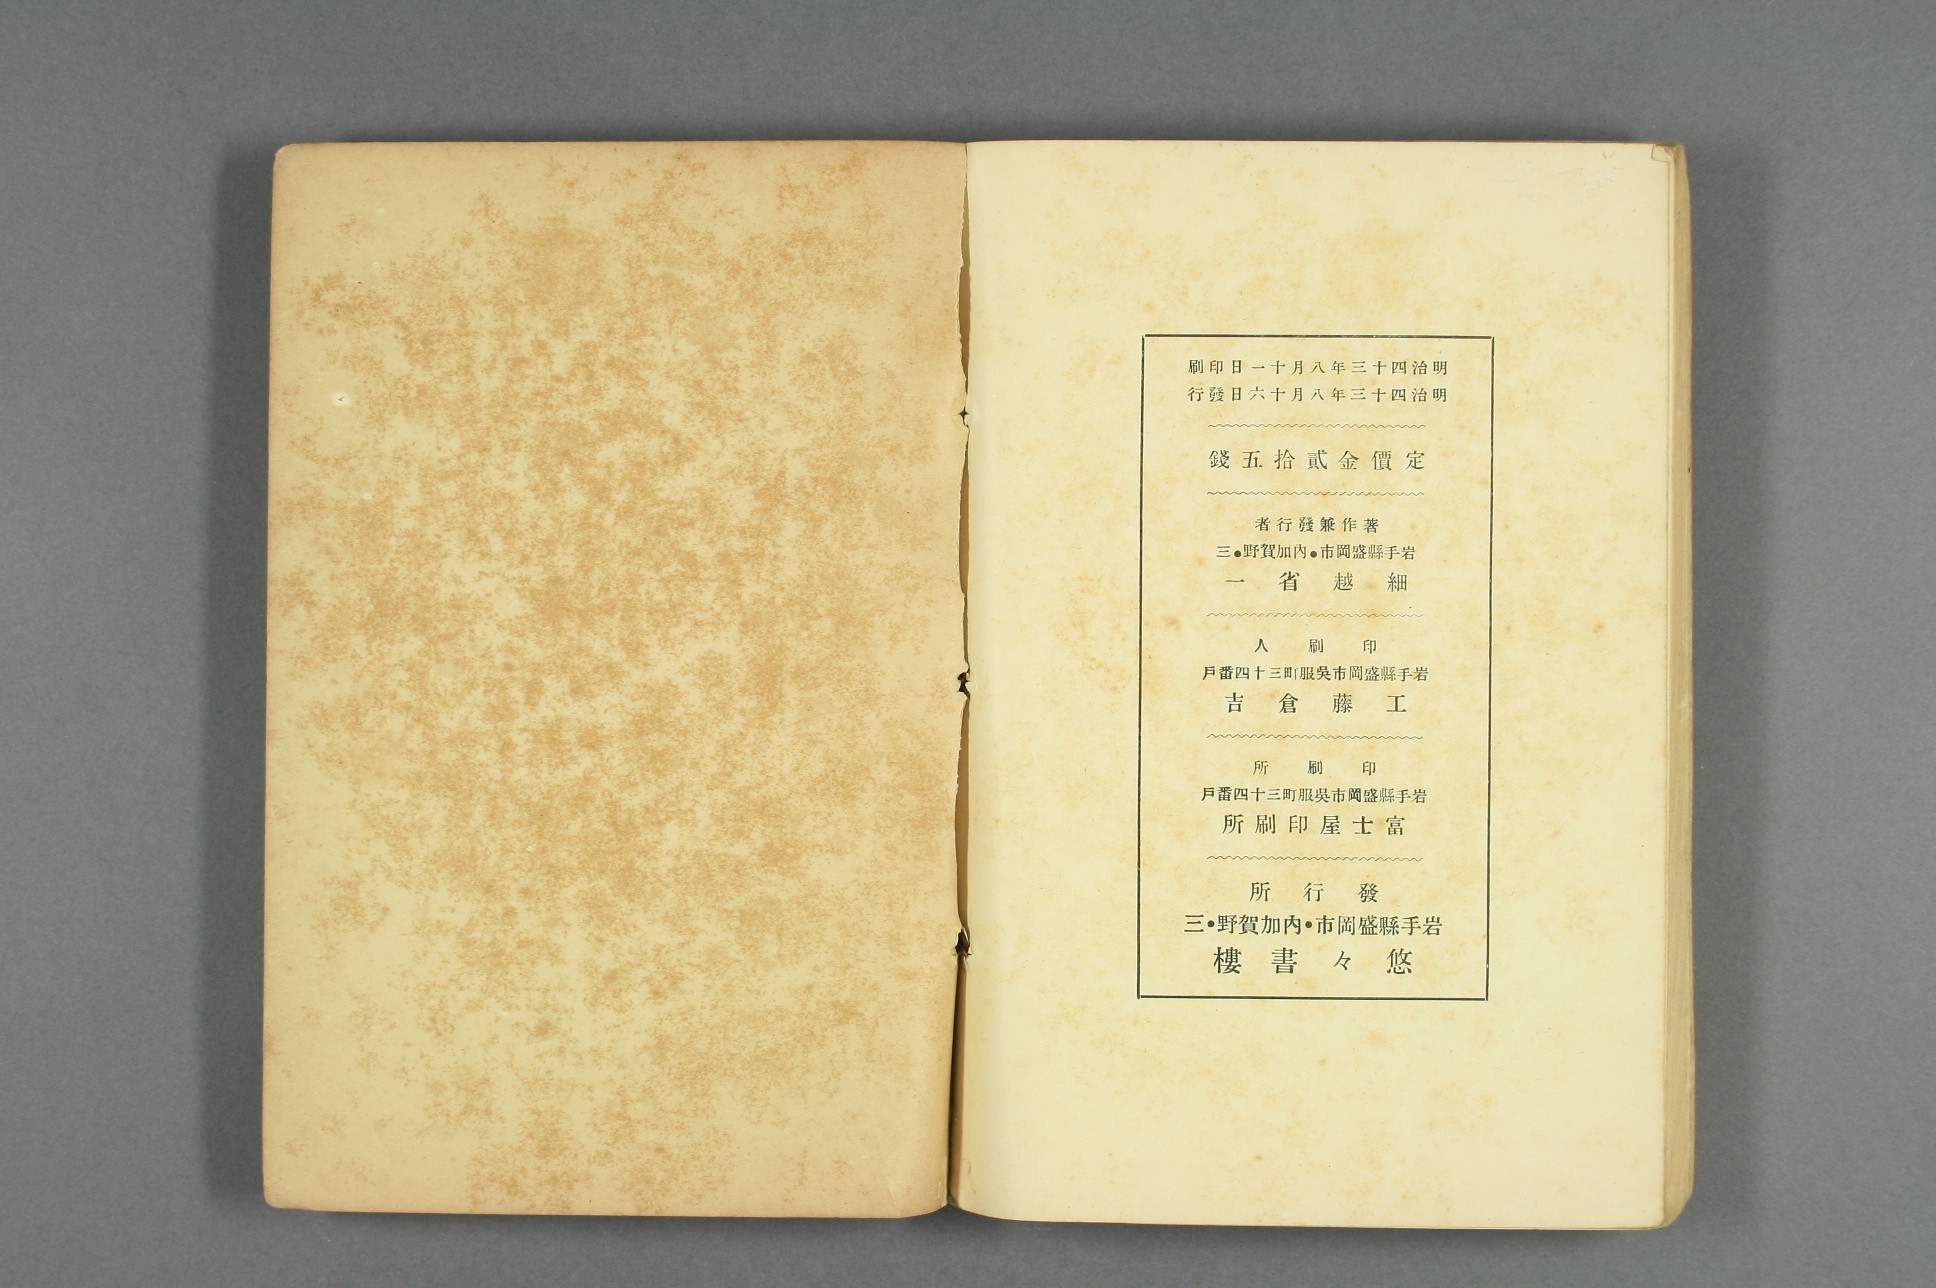 明治四十三年八月十一日印刷
明治四十三年八月十六日發行
定價金貳拾五錢
著作兼發行者
岩手縣盛岡市●內加賀野●三
細越省一
印刷人
岩手縣盛岡市吳服町三十四番戶
工藤倉吉
印刷所
岩手縣盛岡市吳服町三十四番戶
富士屋印刷所
發行所
岩手縣盛岡市●內加賀野●三
悠々書樓